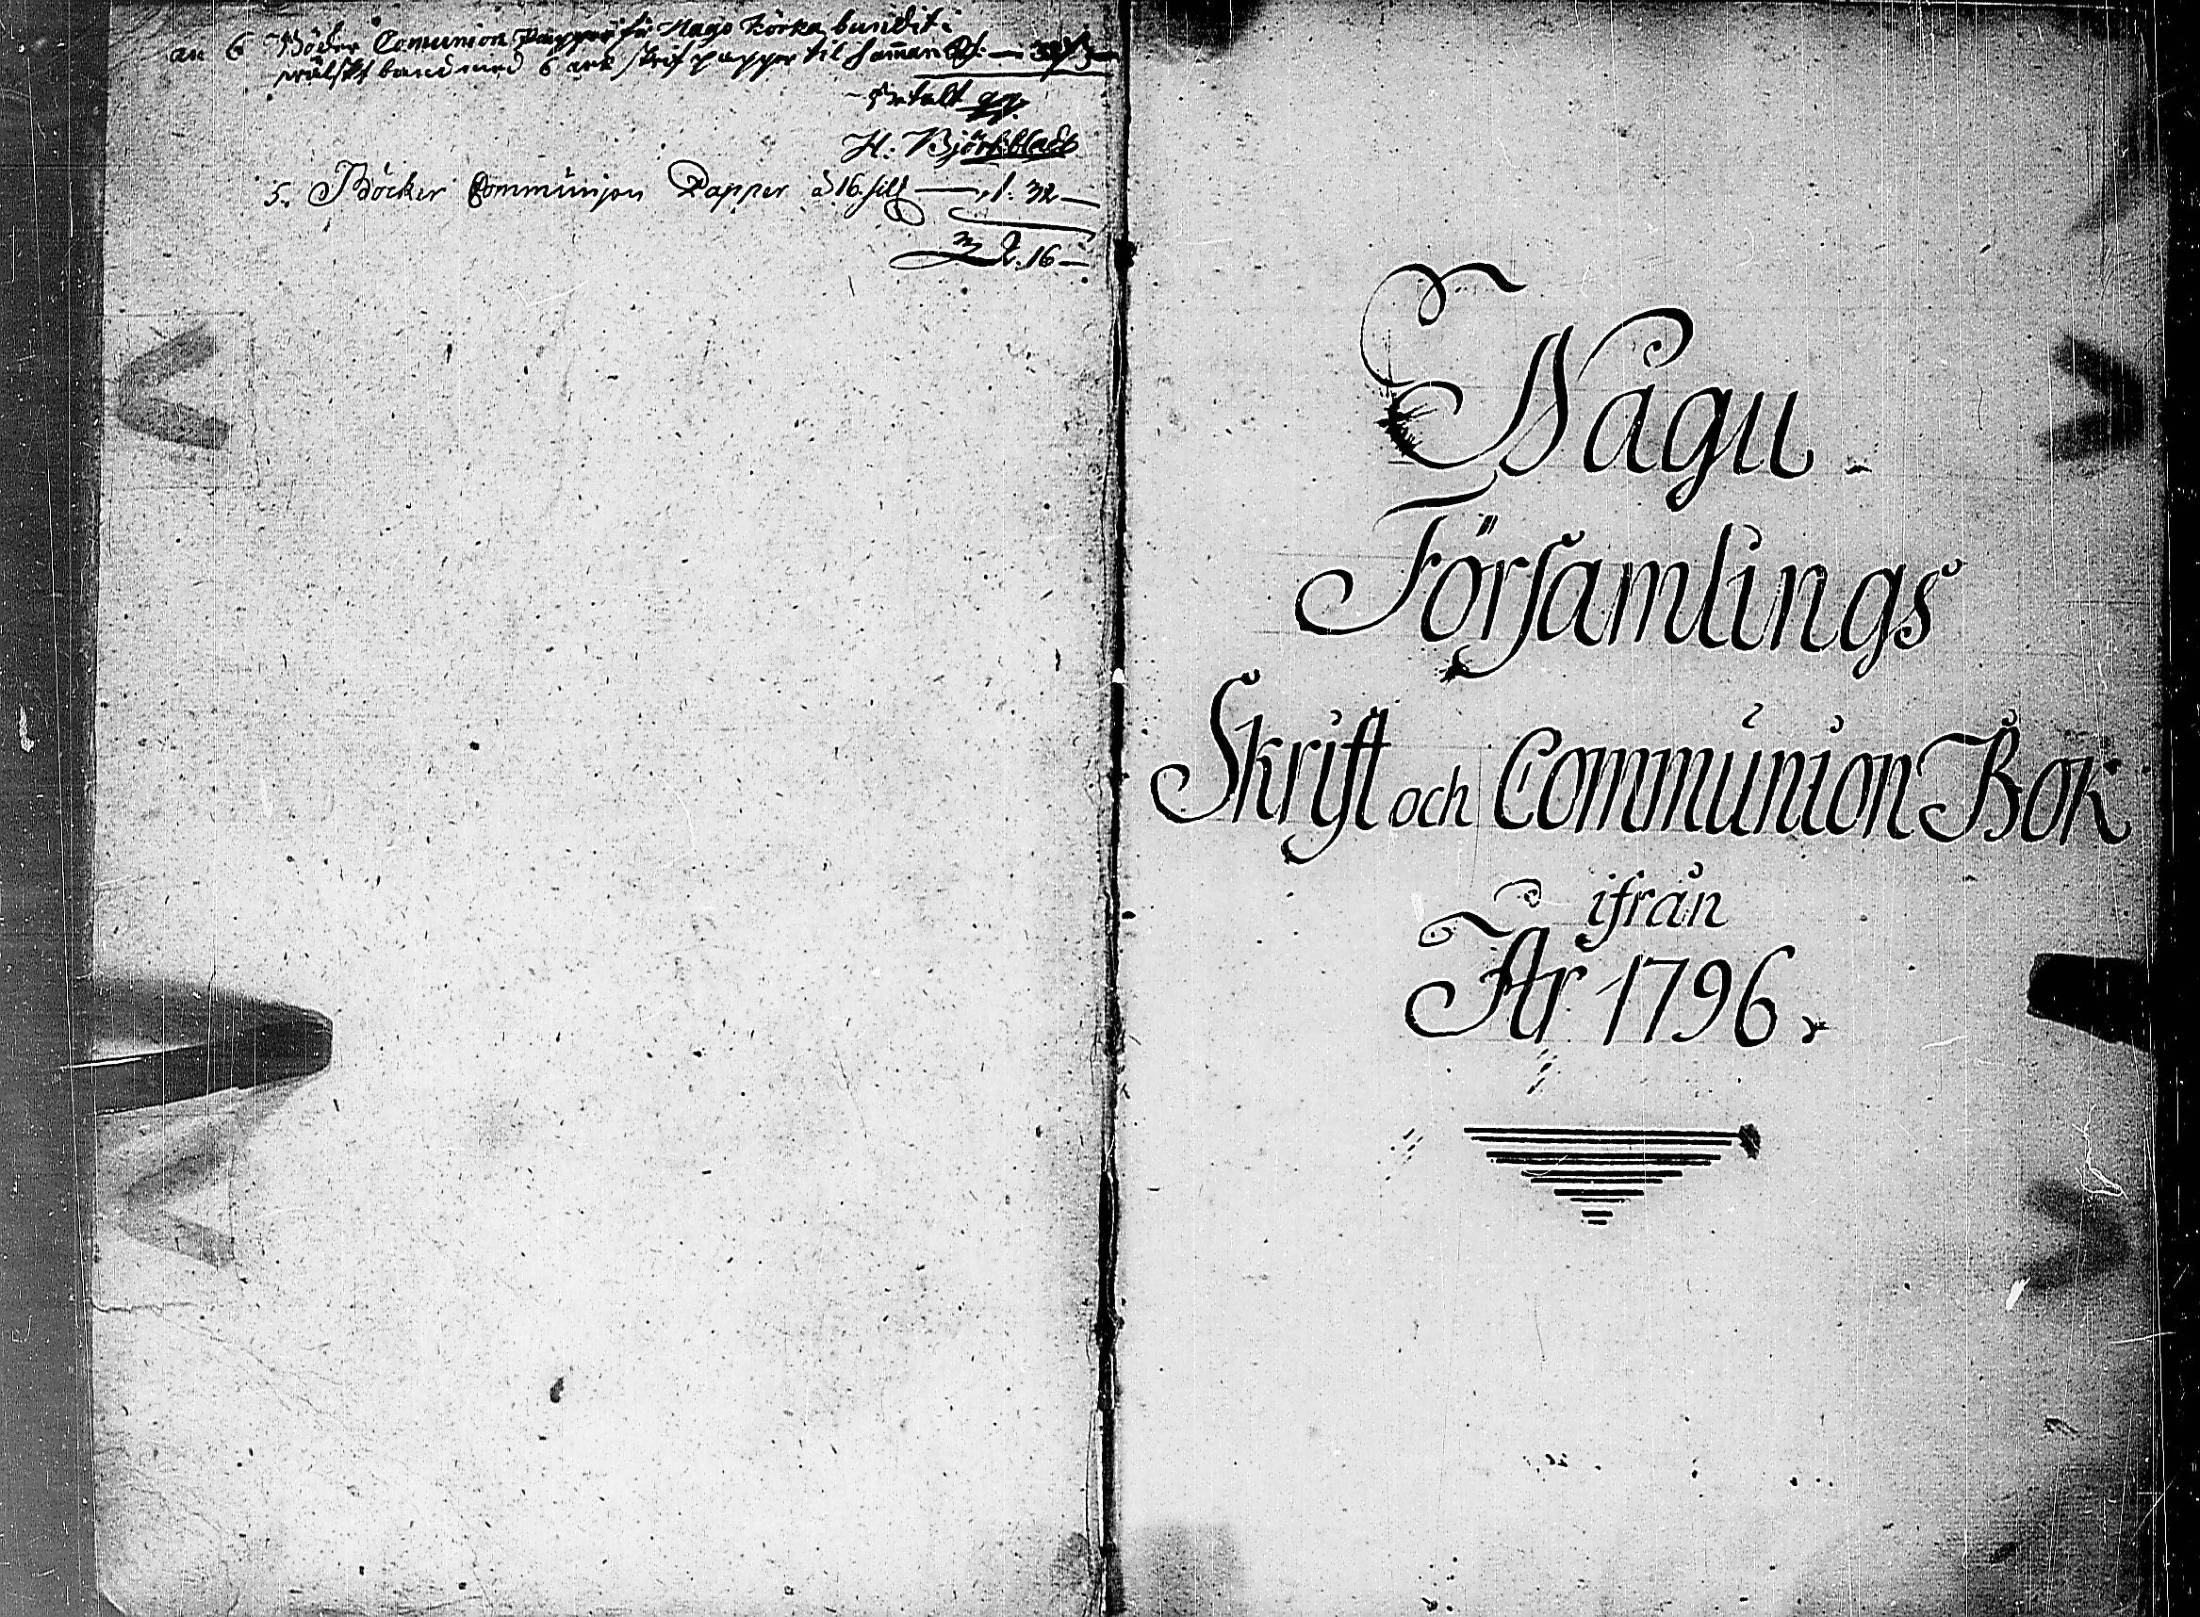 an 6 Böcker Comunion Papper för Nago Körka bundit i
band med 6 ark skrif papper til samman
Betalt
H. Björkbladt
5. Böcker Communjon Papper à 16 sill — 1: 32 —
2. 16 —
Nagu
Församlings
Skrift och Communion Bok
ifrån
År 1796.